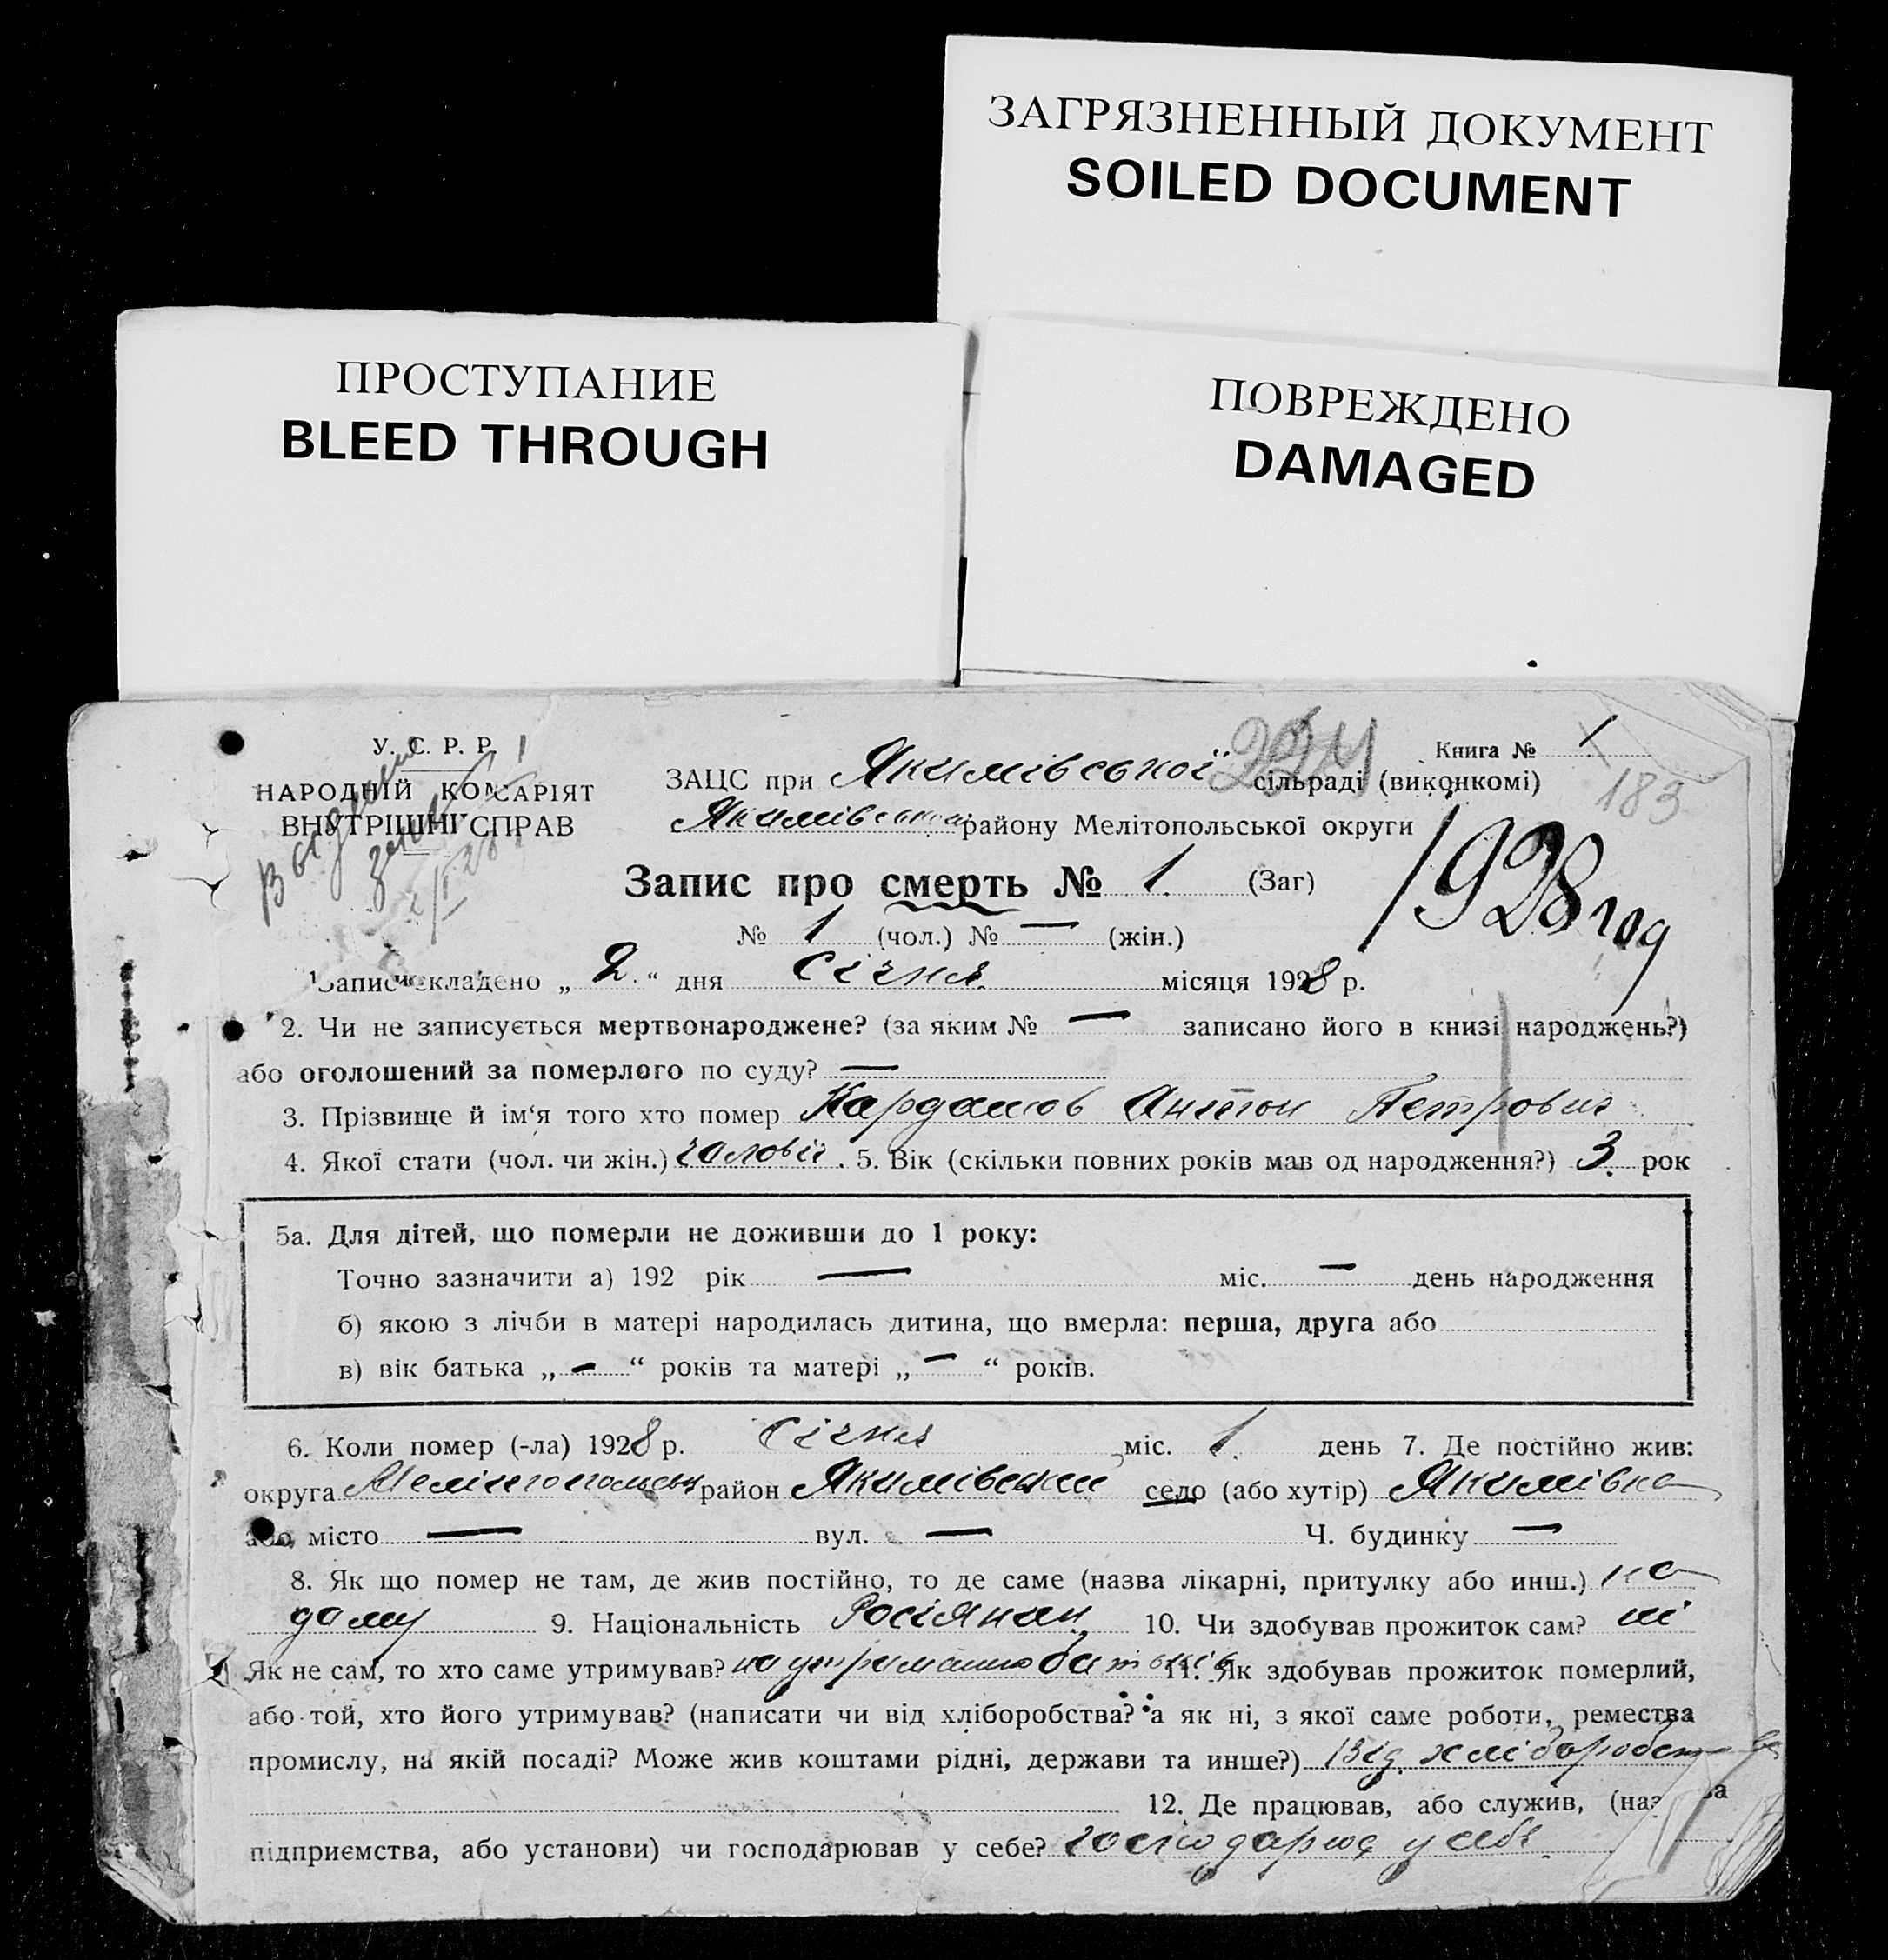 ЗАГРЯЗНЕННЫЙ ДОКУМЕНТ
SOILED DOCUMENT
ПРОСТУПАНИЕ
BLEED THROUGH
ПОВРЕЖДЕНО
DAMAGED
У. С. Р. Р.
НАРОДНІЙ КОМІСАРІЯТ
ВНУТРІШНІ СПРАВ
224
Книга № 1
183
ЗАЦС при Якимівської сільраді (виконкомі)
Якимівськ району Мелітопольської округи
1928 год
Запис про смерть № 1. (Заг)
№ 1 (чол.) № — (жін.)
Запис складено „ 2. “ дня Січня місяця 1928 р.
2. Чи не записується мертвонароджене? (за яким № — записано його в книзі народжень?)
або оголошений за померлого по суду? —
3. Прізвище й ім‘я того хто помер Кардашов Антон Петрович
4. Якої стати (чол. чи жін.) чоловіч. 5. Вік (скільки повних років мав од народження?) 3. рок
5а. Для дітей, що померли не доживши до 1 року:
Точно зазначити а) 192 рік — міс. — день народження
б) якою з лічби в матері народилась дитина, що вмерла: перша, друга або
в) вік батька „ — “ років та матері „ — “ років.
6. Коли помер (-ла) 1928 р. Січня міс. 1. день 7. Де постійно жив:
округа Мелітопольськ район Якимівський село (або хутір) Якимівка
або місто — вул. — Ч. будинку —
8. Як що помер не там, де жив постійно, то де саме (назва лікарні, притулку або инш.) на
дому 9. Національність Росіянин 10. Чи здобував прожиток сам? ні
Як не сам, то хто саме утримував? на утриманню батьків 11. Як здобував прожиток померлий,
або той, хто його утримував? (написати чи від хліборобства? а як ні, з якої саме роботи, ремества
промислу, на якій посаді? Може жив коштами рідні, держави та инше?) Від хліборобства
12. Де працював, або служив, (назва
підприємства, або установи) чи господарював у себе? господарює у себе